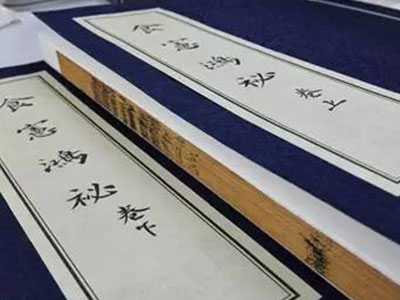 食憲鴻祕 卷上
食憲鴻祕 卷下